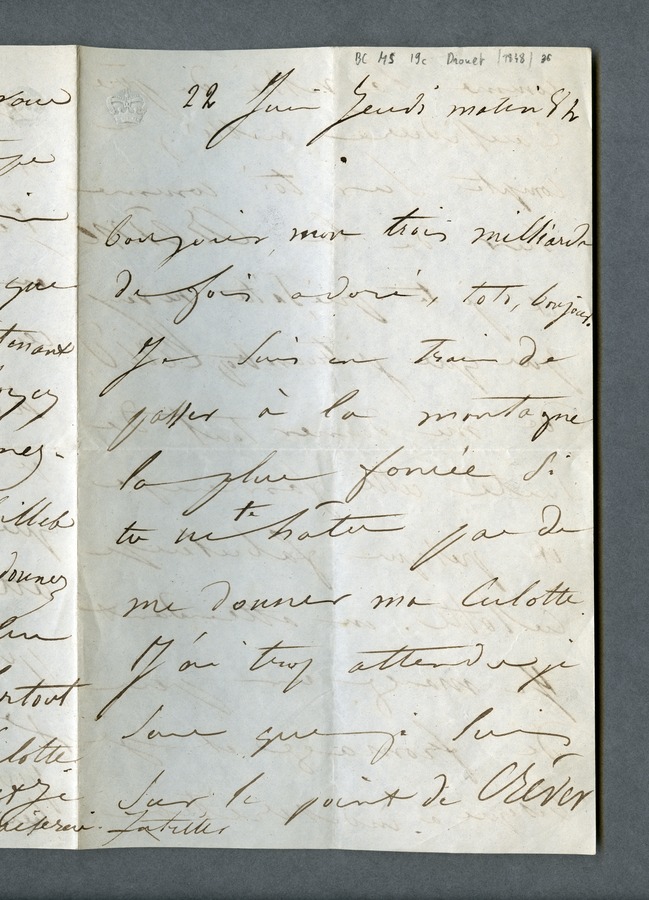 BC MS 19c Drouet /1848/ 26
22 Juin Jeudi matin 8h
bonjour mon trois milliards
de fois adoré, toto, bonjour.
Je suis en train de
passer à la montagne
la plus foncée si
tu ne te hâte pas de
me donner ma culotte.
J'ai trop attendu je
sens que je suis
sur le point de Crêver
vous
que
tenant
nez-
donnez
surtout
culotte